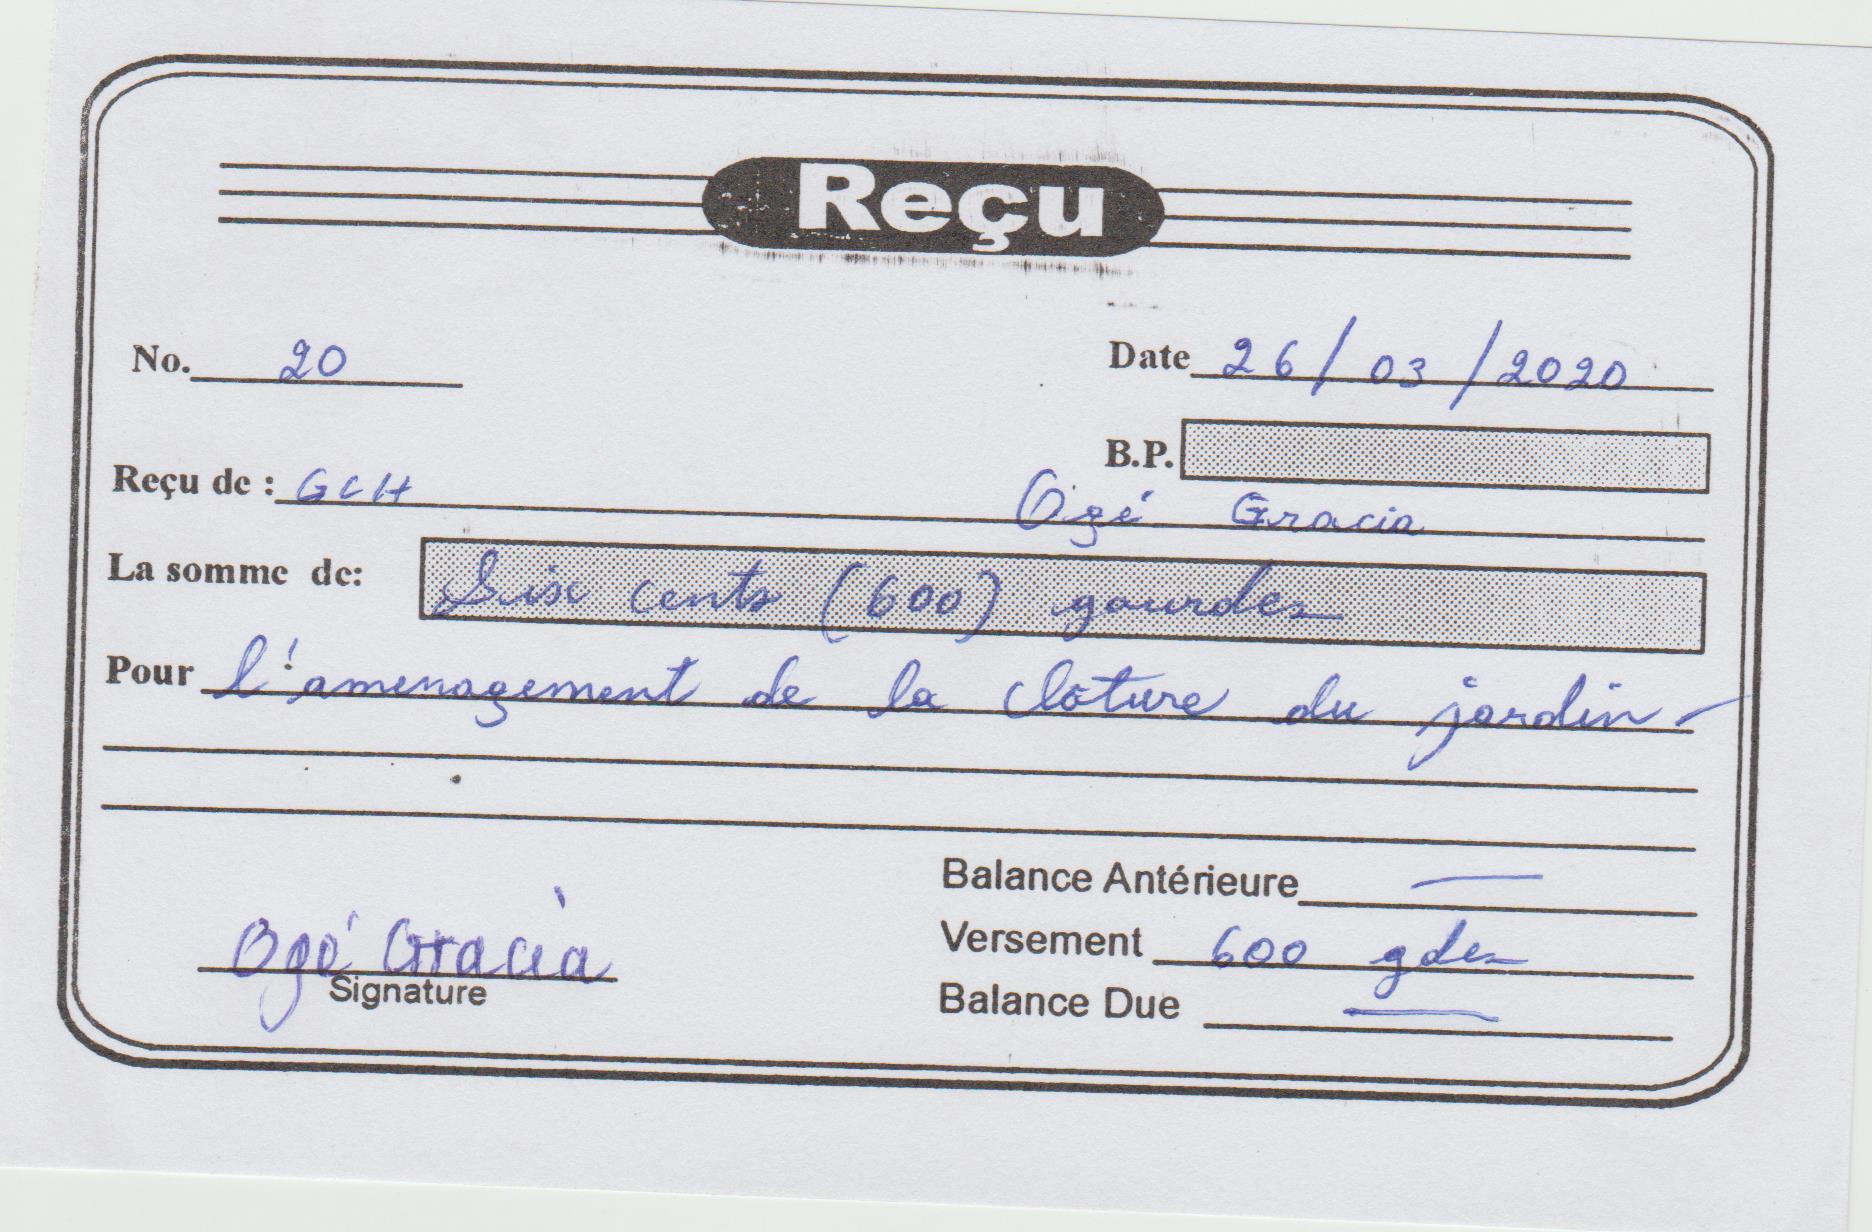 Reçu
No. 20
Date 26/03/2020
B.P.
Reçu de : GCH Ogé Gracia
La somme de: Six cents (600) gourdes
Pour l'amenagement de la clôture du jardin -
Balance Antérieure —
Versement 600 gdes
Balance Due —
Ogé Gracia
Signature